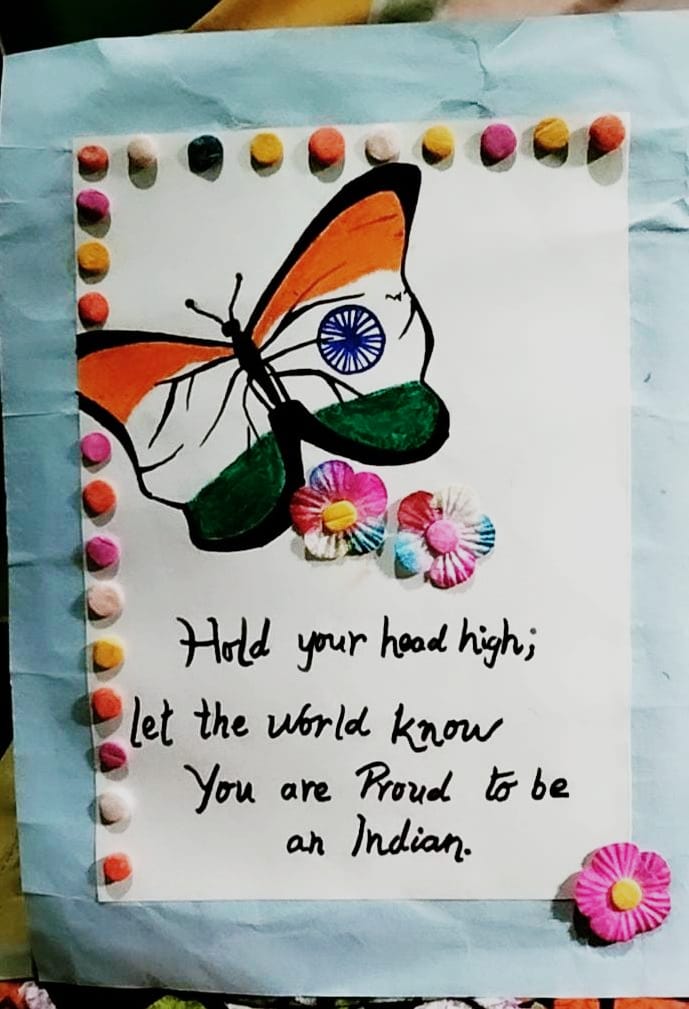 Hold your head high;
let the world know
You are Proud to be
an Indian.